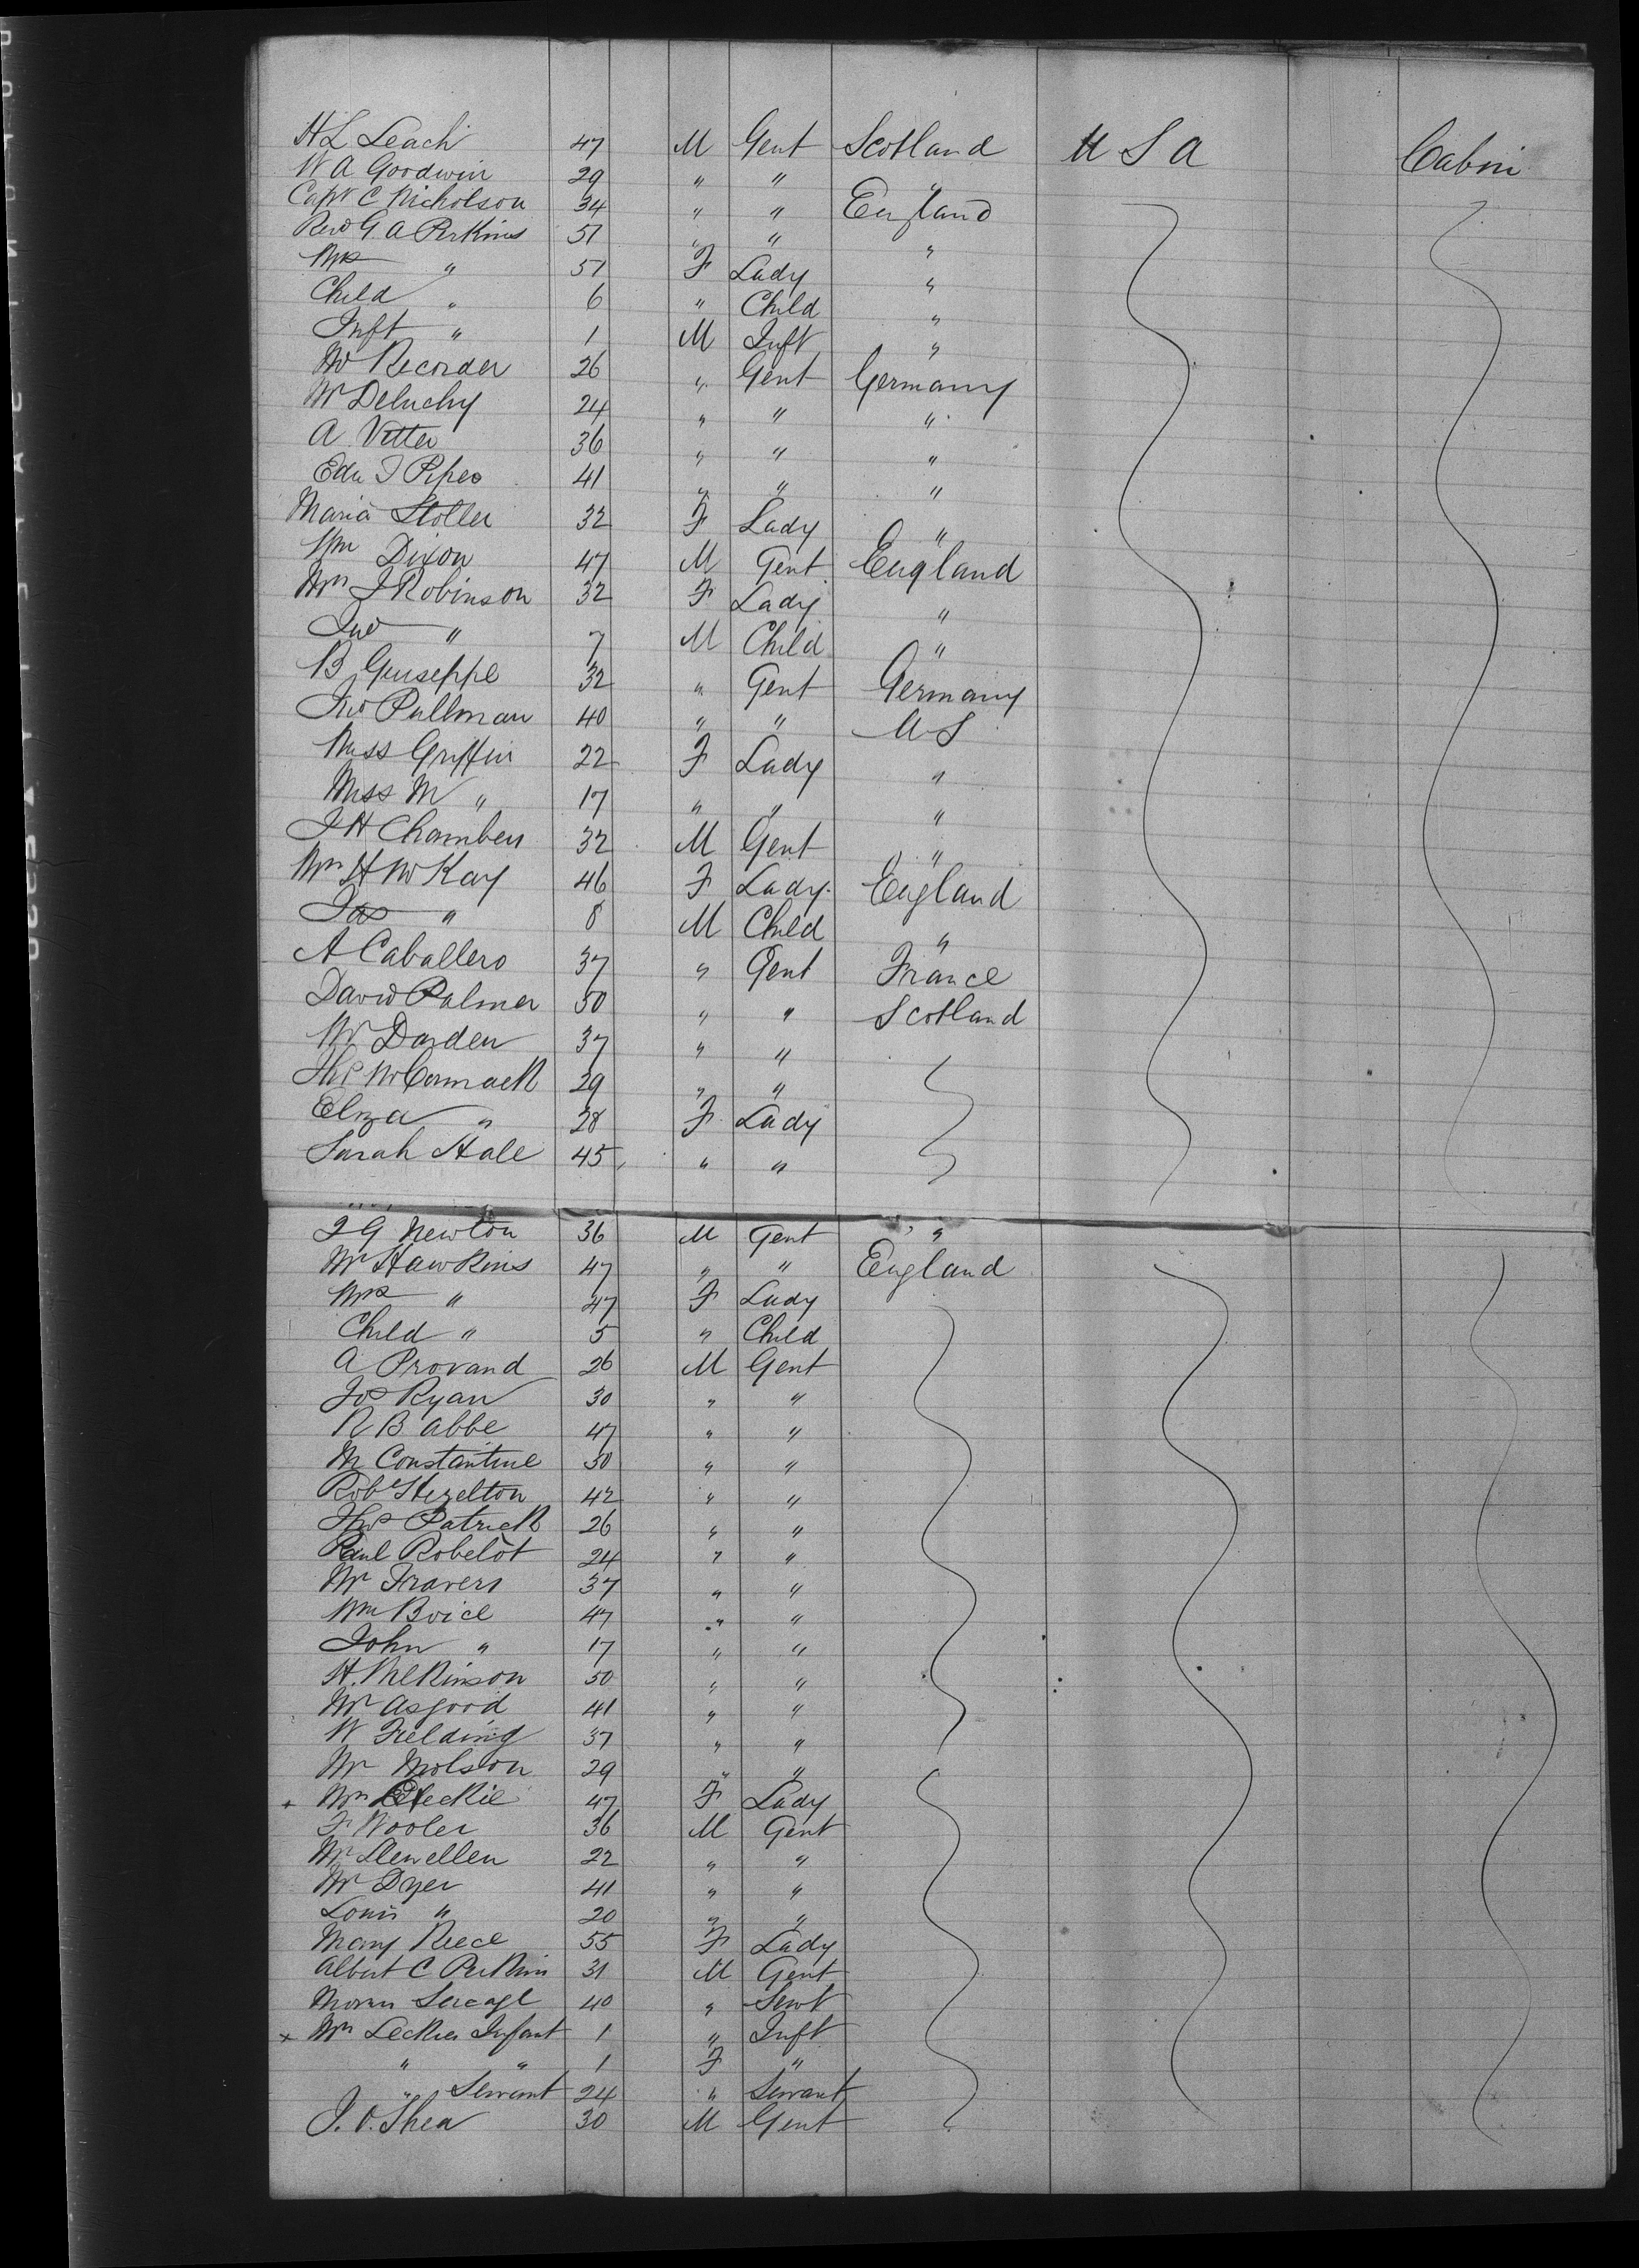 H L Leach 47 M Gent Scotland U S A Cabin
W A Goodwin 29 " " "
Capt C Nicholson 34 " " England
Revd G. A Perkins 51 " " "
Mrs " 51 F Lady "
Child " 6 " Child "
Inft " 1 M Inft "
Recorder 26 " Gent Germany
Mr Deluchy 24 " " "
A Vetter 36 " " "
Edw Pipes 41 " " "
Maria Stoller 32 F Lady "
Wm Dixon 47 M Gent England
Mrs J Robinson 32 F Lady "
Jno " 7 M Child "
B Guiseppe 32 " Gent Germany
Jno Pullman 40 " " U S
Miss Griffin 22 F Lady "
Miss M " 17 " " "
J H Chambers 32 M Gent "
Mrs H McKay 46 F Lady England
Jas " 8 M Child "
A Caballero 37 " Gent France
David Palmer 50 " " Scotland
Mr Darden 37 " "
Thos McCormack 29 " "
Eliza " 28 F Lady
Sarah Hale 45 " "
J G Newton 36 M Gent "
Mr Hawkins 47 " " England
Mrs " 47 F Lady
Child " 5 " Child
A Provand 26 M Gent
Jos Ryan 30 " "
R B Abbe 47 " "
M Constantine 30 " "
Robt Hezelton 42 " "
Thos Patrick 26 " "
Paul Robelot 24 " "
Mr Travers 37 " "
Wm Boice 47 " "
John " 17 " "
H. Wilkinson 50 " "
Mr Asgood 41 " "
W Fielding 37 " "
Mr Molson 29 " "
+ Mrs Leckie 47 F Lady
F Wooler 36 M Gent
Mr Llewellen 22 " "
Mr Dyer 41 " "
Louis " 20 " "
Mary Reece 55 F Lady
Albert C Perkins 31 M Gent
40 " Servt
+ Mrs Leckies Infant 1 " Inft
" " 1 F "
" Servant 24 " Servant
J. O. Shea 30 M Gent